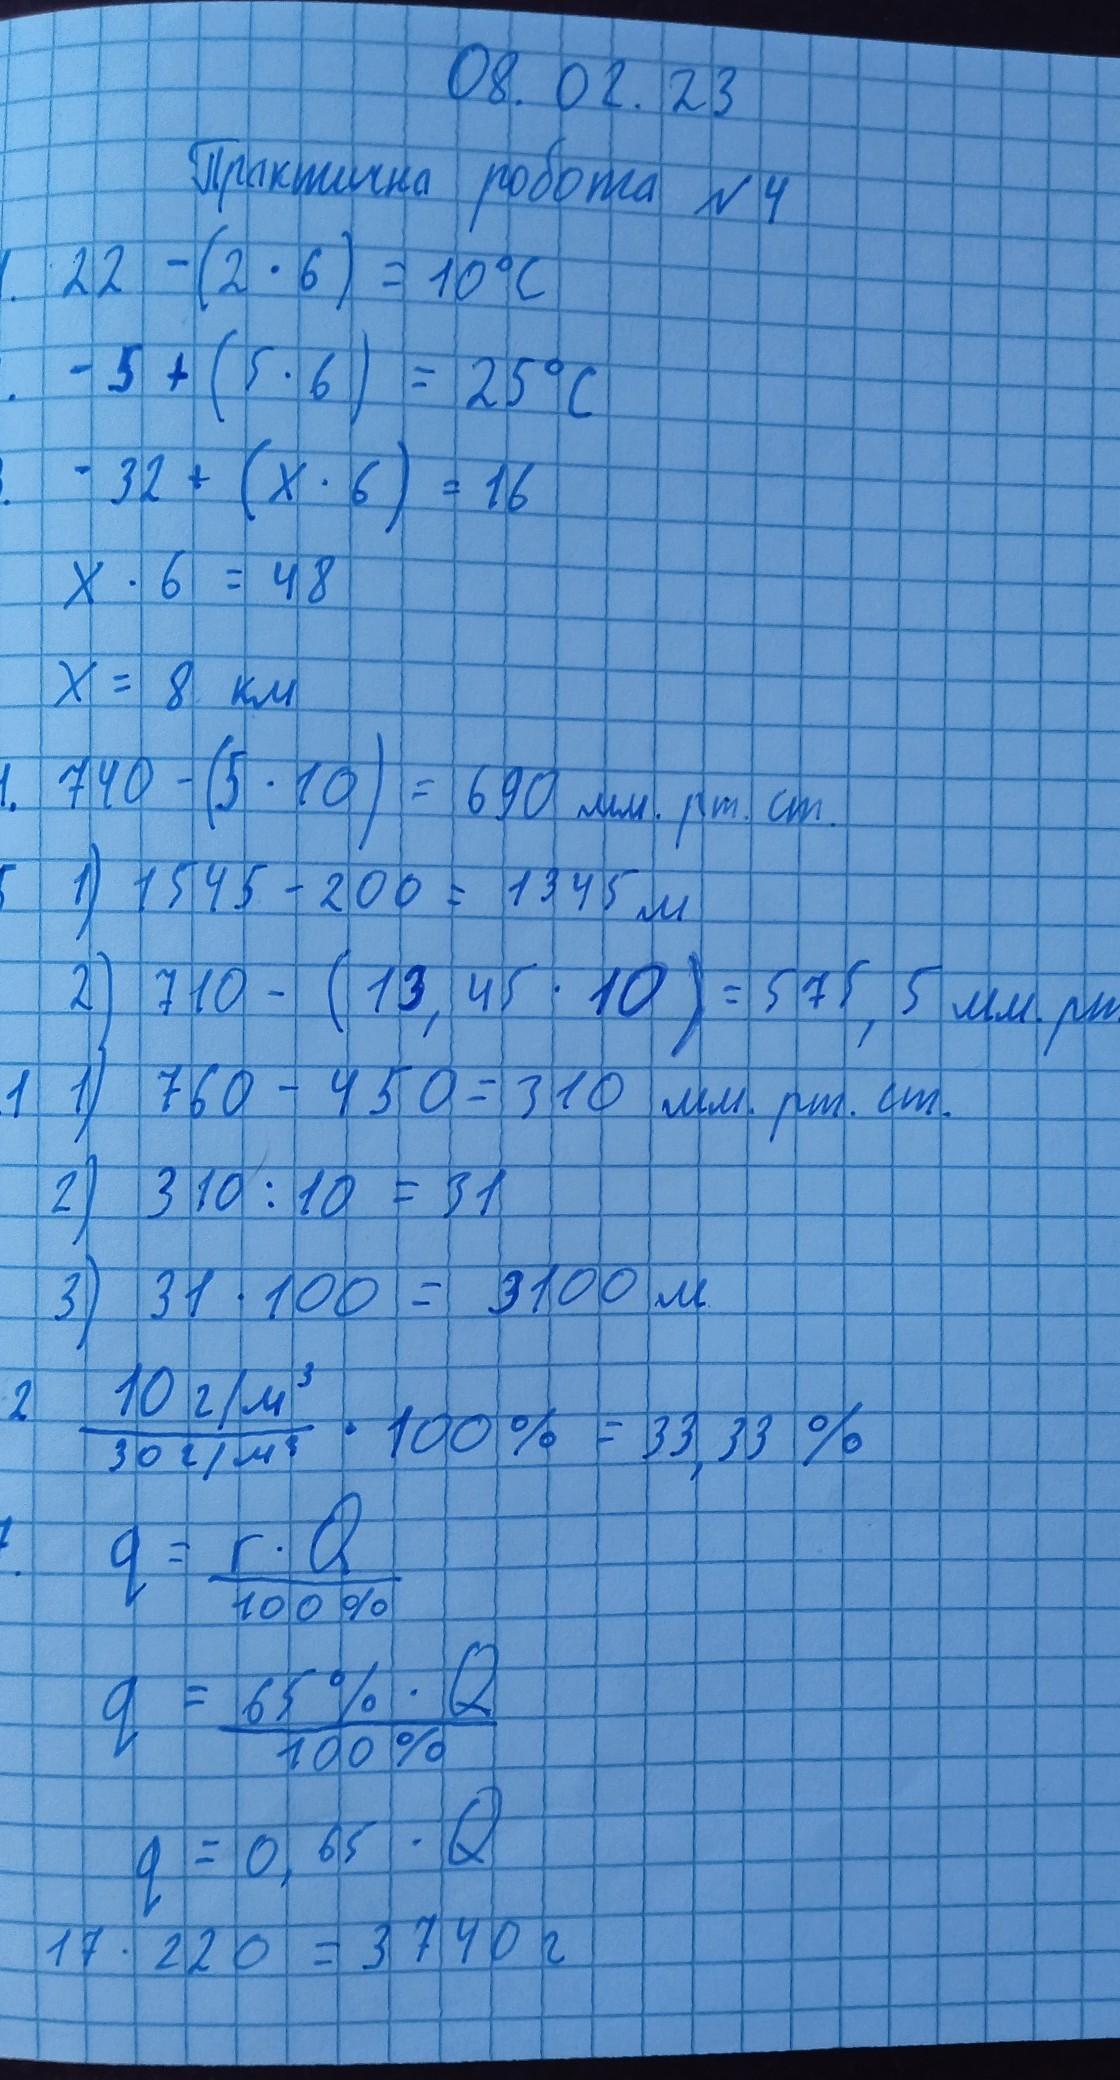 08.02.23
Практична робота №4
1. 22 - (2 · 6) = 10°C
. - 5 + (5 · 6) = 25°C
3. - 32 + (x · 6) = 16
x · 6 = 48
x = 8 км
1. 740 - (5 · 10) = 690 мм. рт. ст.
5 1) 1545 - 200 = 1345 м
2) 710 - (13,45 · 10) = 575,5 мм. рт.
1 1) 760 - 450 = 310 мм. рт. ст.
2) 310 : 10 = 31
3) 31 · 100 = 3100 м
2 10 г/м³ / 30 г/м³ · 100% = 33,33 %
7. q = r · Q / 100%
q = 65% · Q / 100%
q = 0,65 · Q
17 · 220 = 3740 г